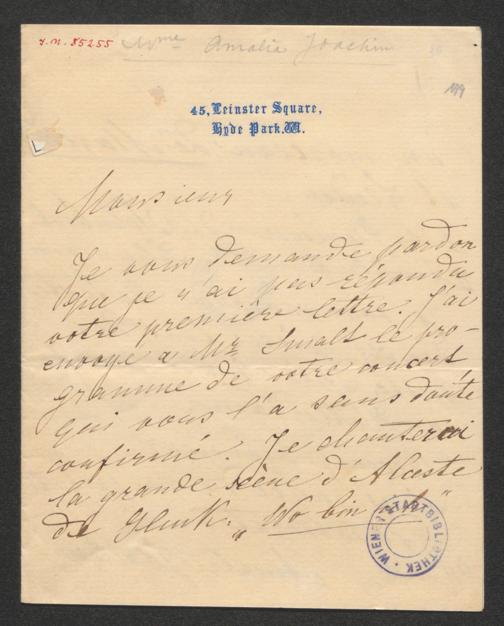 J.N. 85255
Mme Amalia Joachim
199
45, Leinster Square,
Hyde Park. W.
Monsieur
Je vous demande pardon
que je n'ai pas répondu
votre première lettre. J'ai
envoyé a Mr le pro-
gramme de votre concert
qui vous l'a sans doute
confirmé. Je chanterai
la grande scène d'Alceste
de Gluck. „Wo bin ich"
WIENER STADTBIBLIOTHEK
L